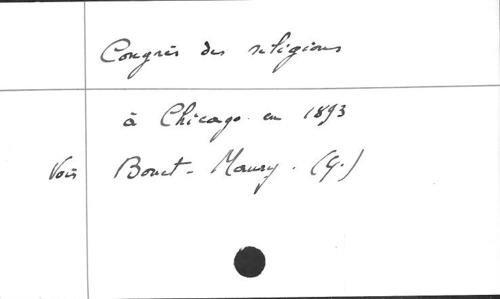 Congrès des religions
à Chicago en 1893
Voir Bonet-Maury. (G.)